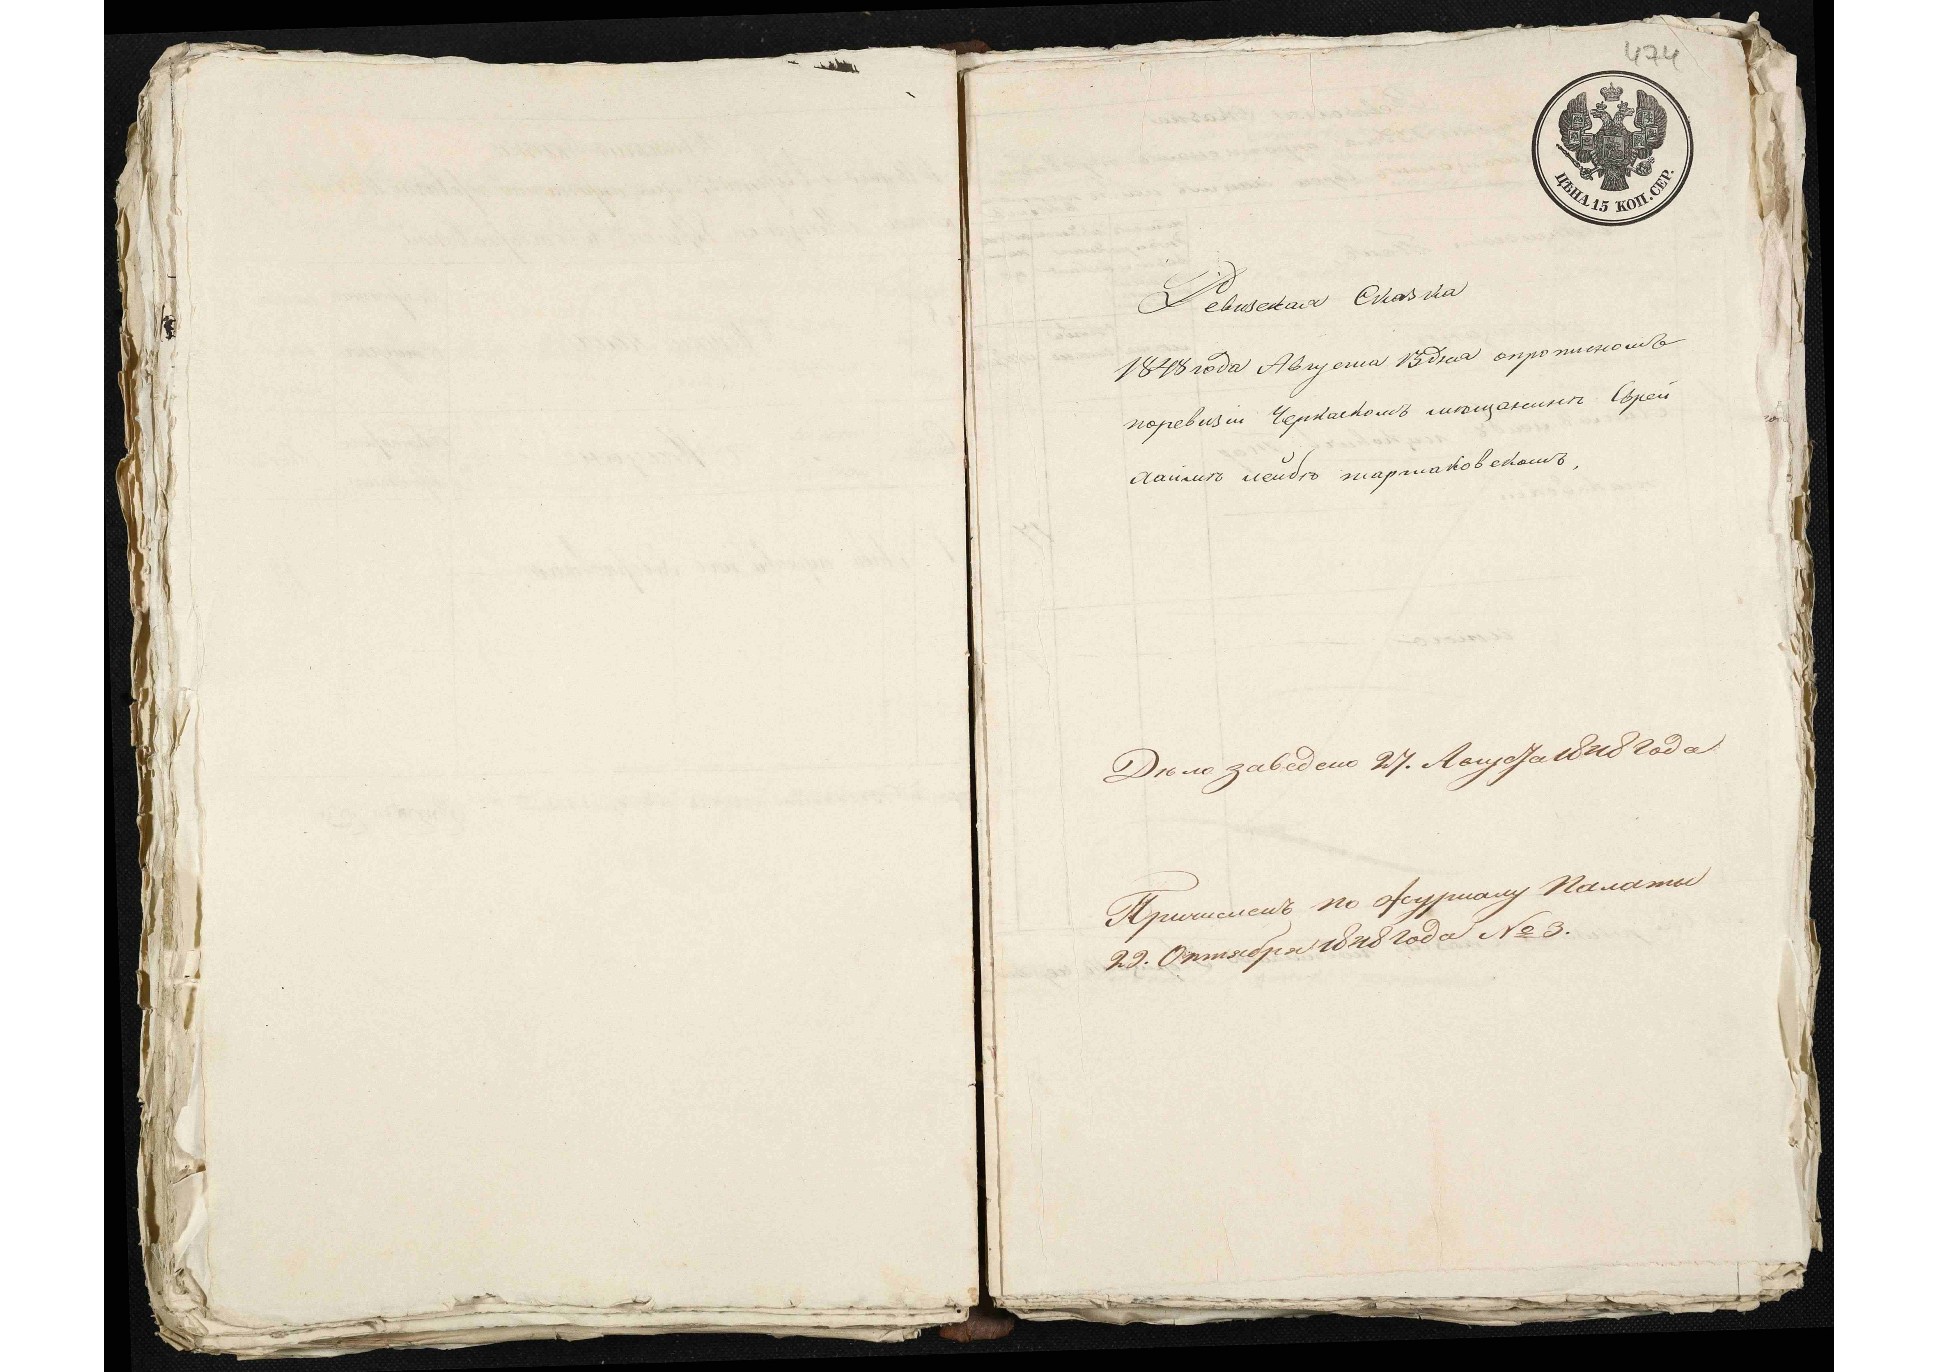 474
ЦѢНА 15 КОП. СЕР.
Ревизская Сказка
1848 года Августа 13 дня опрописномъ
поревизіи Черкаскомъ мѣщанинѣ Еврей
Хаимѣ Лейбѣ Шармаковскомъ,
Дѣло заведено 27. Августа 1848 года
Причисленъ по журналу Палаты
22. Октября 1848 года № 3.